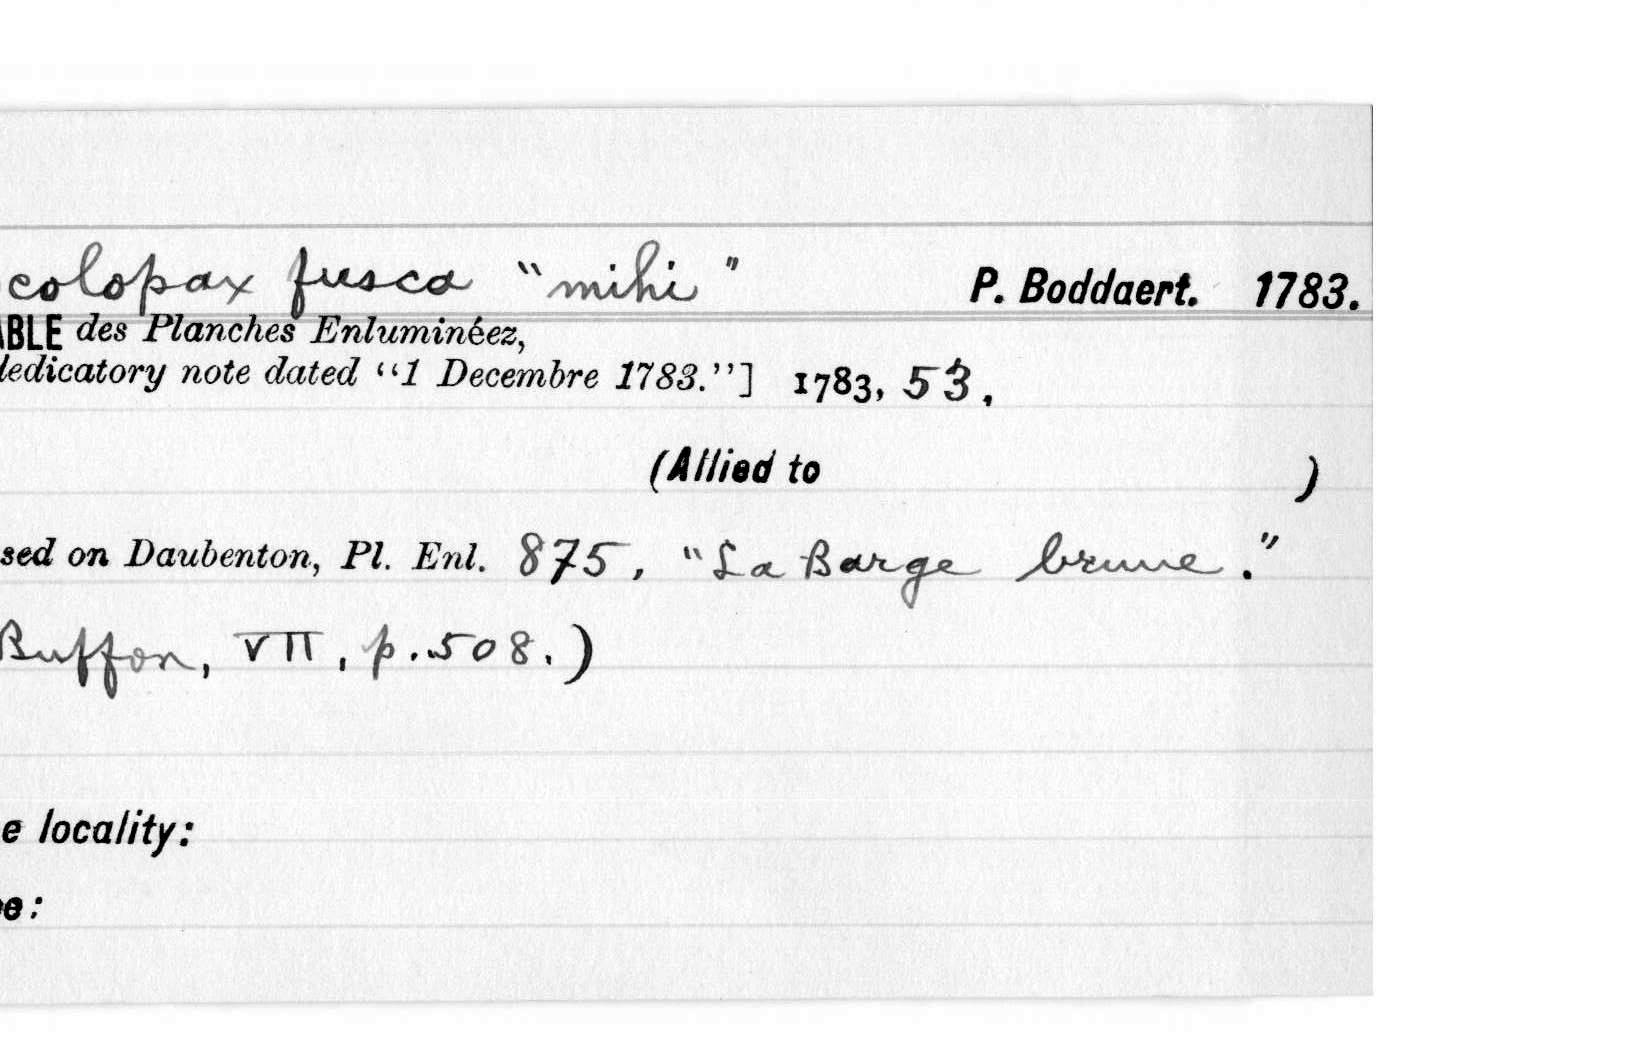 colopax fusca "mihi" P. Boddaert. 1783.
ABLE des Planches Enluminéez,
dedicatory note dated "1 Decembre 1783."] 1783, 53.
(Allied to )
sed on Daubenton, Pl. Enl. 875, "La Barge brune."
Buffon, VII, p. 508.)
e locality:
pe: